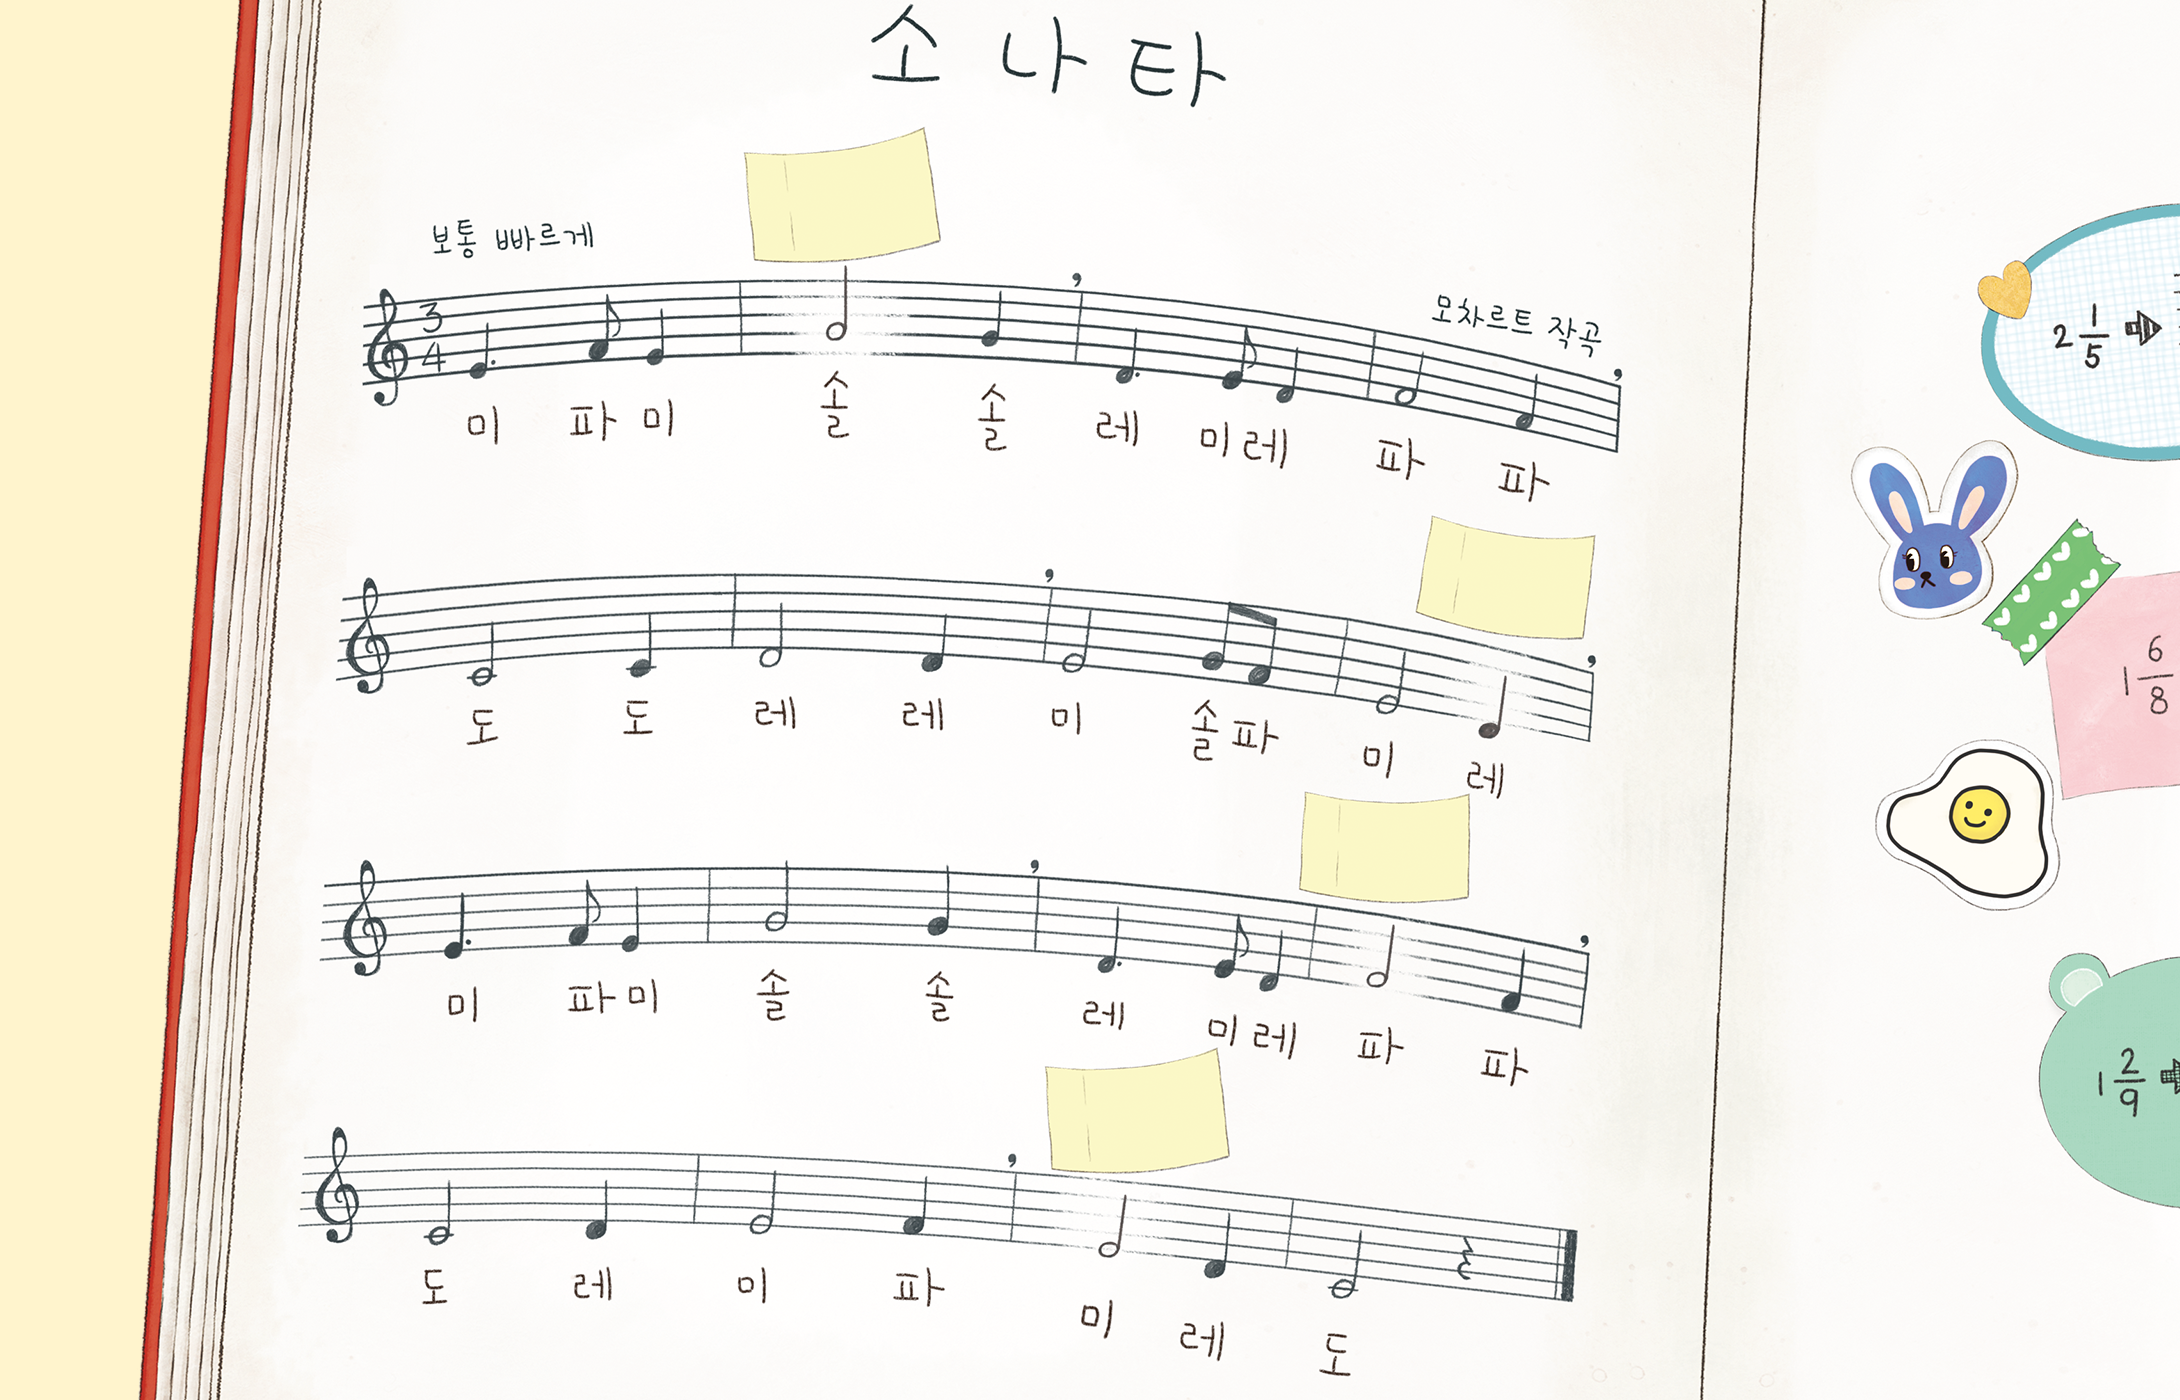 소나타
보통 빠르게
모차르트 작곡
3
4
미 파 미 솔 솔 레 미 레 파 파
도 도 레 레 미 솔 파 미 레
미 파 미 솔 솔 레 미 레 파 파
도 레 미 파 미 레 도
2 1/5
1 6/8
1 2/9